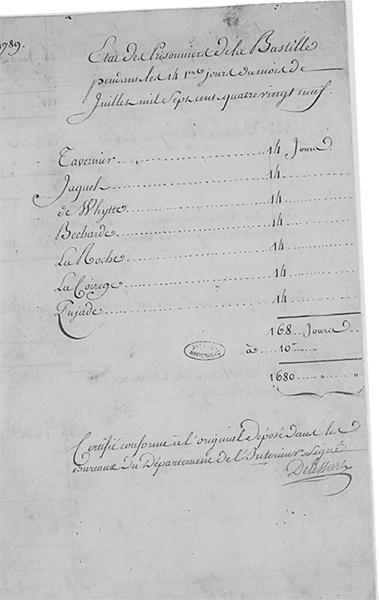 1789.
Etat des Prisonniers de la Bastille
pendant les 14 1ers jours du mois de
Juillet mil Sept cens quatre vingt neuf.
Tavernier 14 Jours
Jaquet 14
de Whytte 14
Bechade 14
La Roche 14
La Corrège 14
Pujade 14
168 Jours
à 10
1680 " "
ARCHIVES NATIONALES
Certifié conforme à l'original déposé dans les
bureaux du Département de l'Intérieur. Signé
Delessart